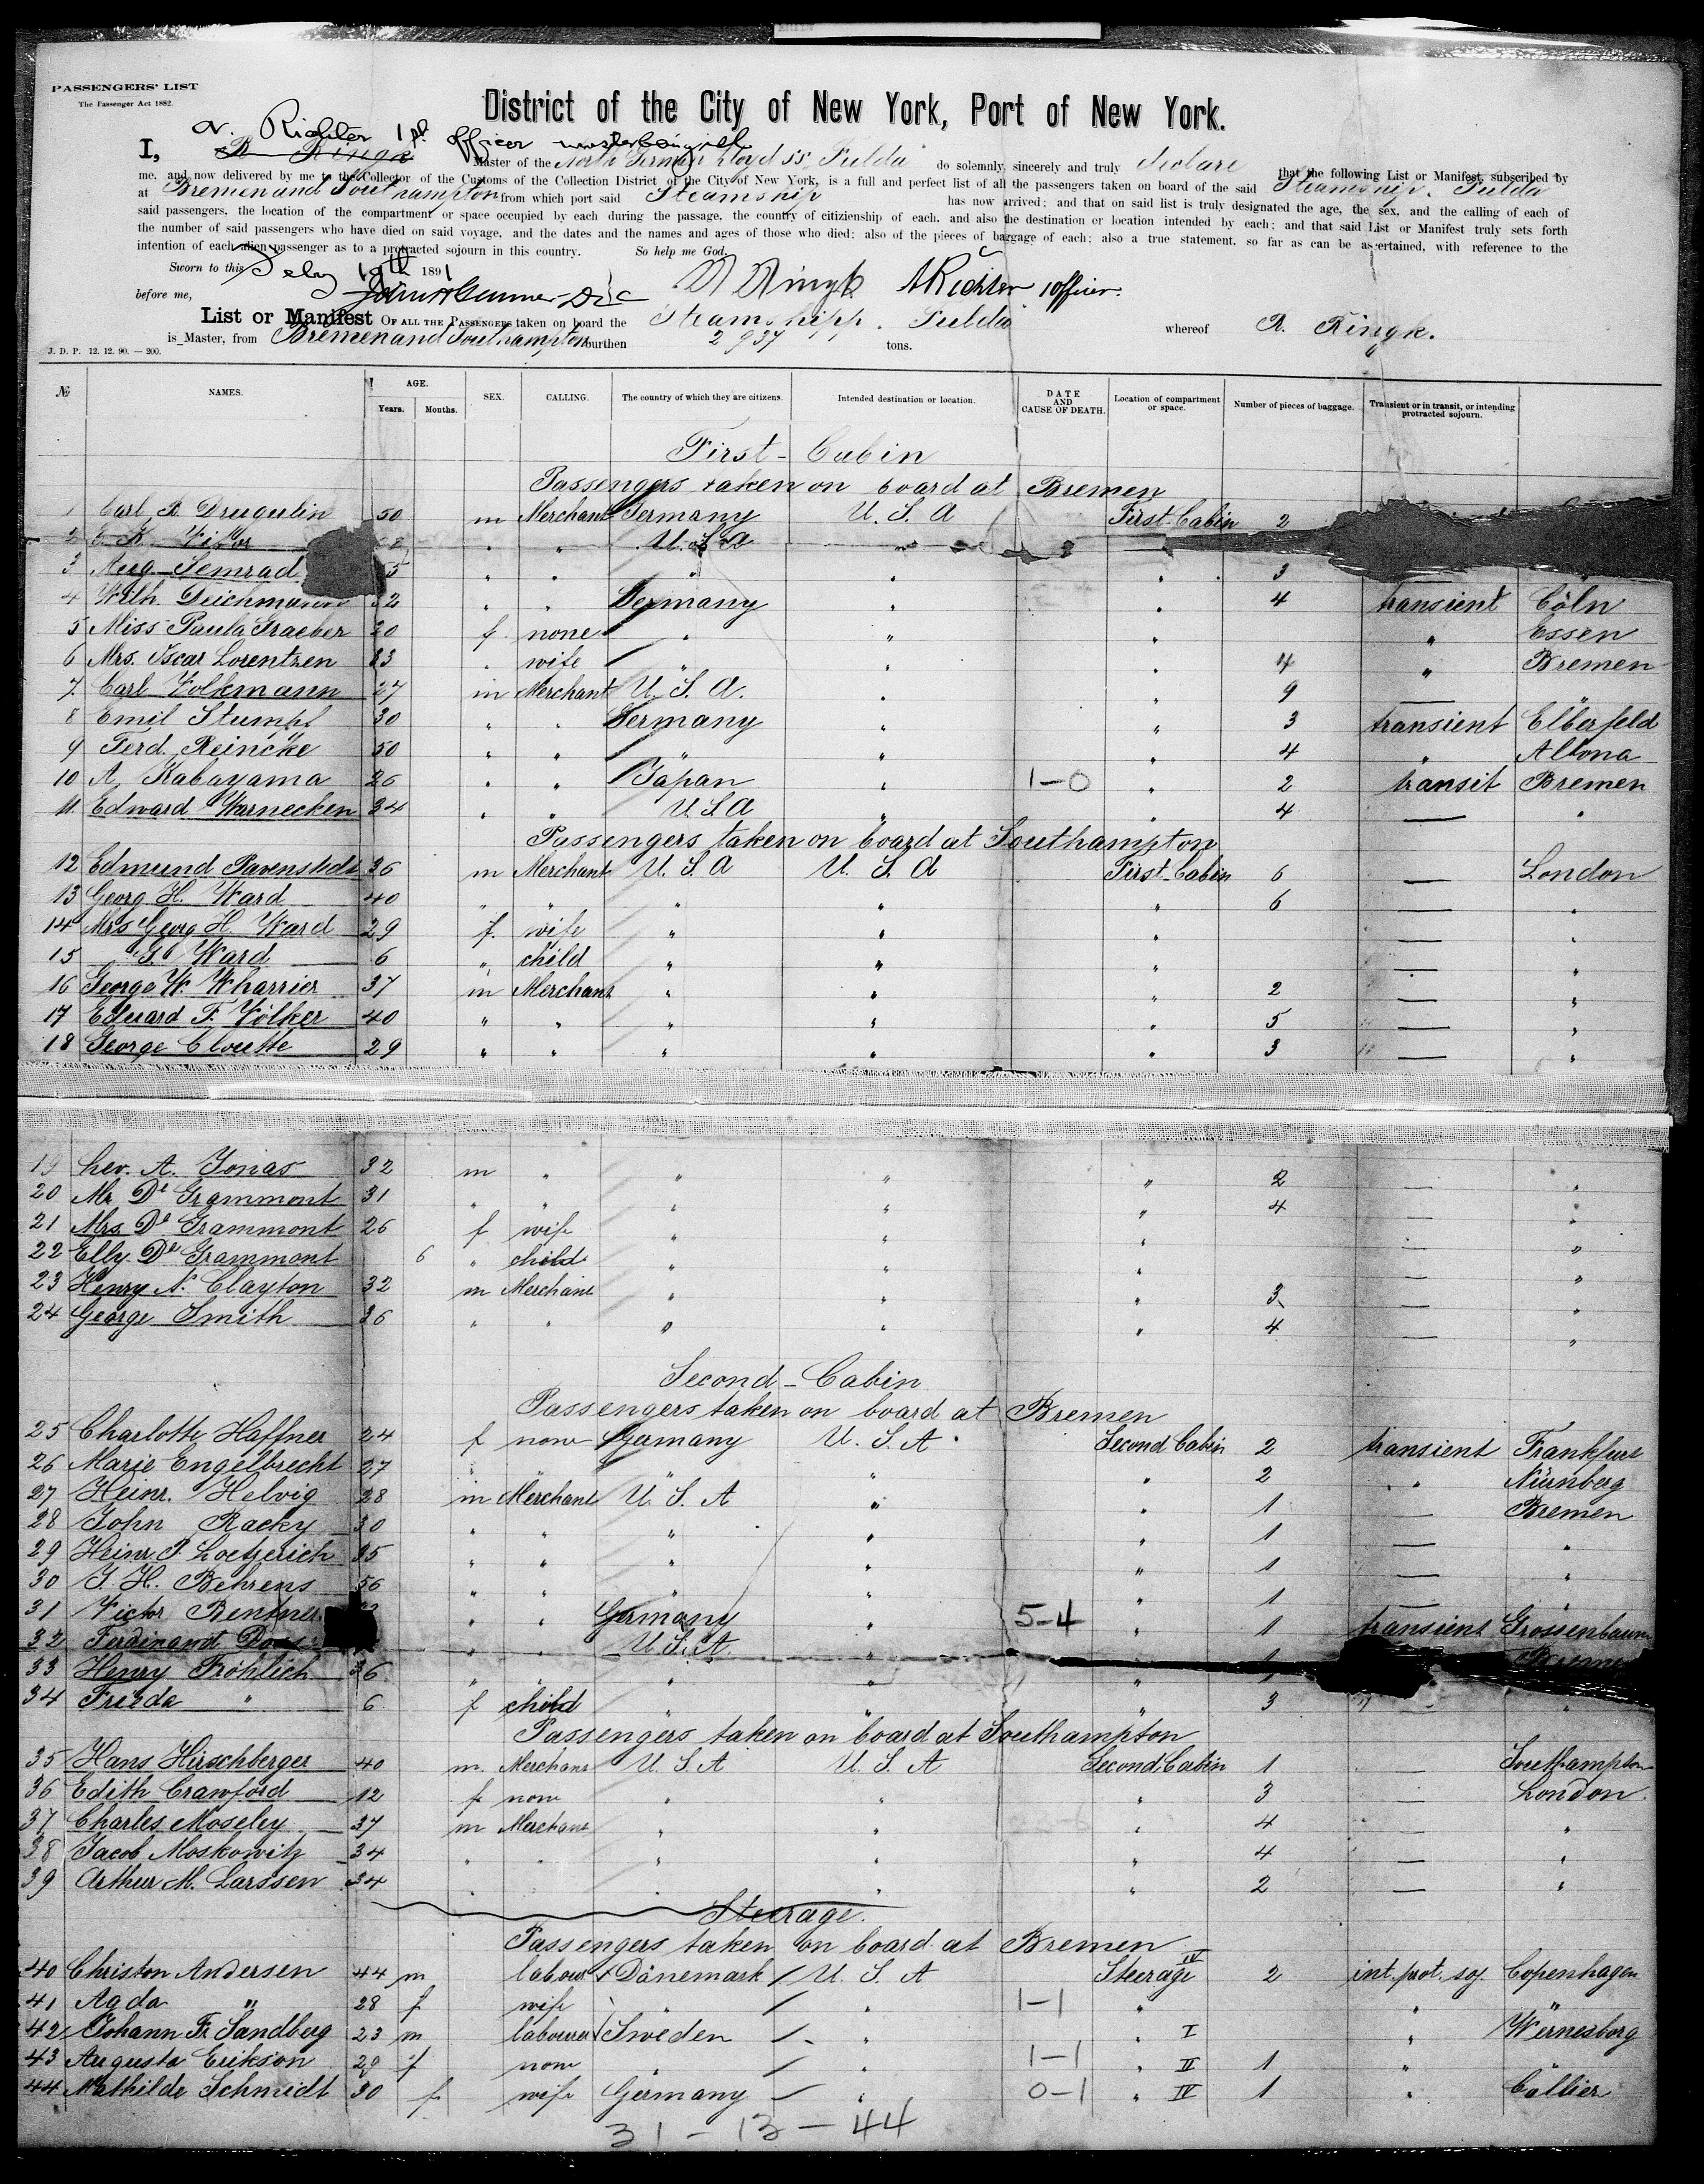 PASSENGERS' LIST
The Passenger Act 1882.
District of the City of New York, Port of New York.
Richter 1st Officer
I, R Ringk Master of the North German Lloyd SS Fulda do solemnly, sincerely and truly declare that the following List or Manifest, subscribed by
me, and now delivered by me to the Collector of the Customs of the Collection District of the City of New York, is a full and perfect list of all the passengers taken on board of the said Steamship. Fulda
at Bremen and Southampton from which port said Steamship has now arrived; and that on said list is truly designated the age, the sex, and the calling of each of
said passengers, the location of the compartment or space occupied by each during the passage, the country of citizienship of each, and also the destination or location intended by each; and that said List or Manifest truly sets forth
the number of said passengers who have died on said voyage, and the dates and the names and ages of those who died; also of the pieces of baggage of each; also a true statement, so far as can be ascertained, with reference to the
intention of each alien passenger as to a protracted sojourn in this country. So help me God.
Sworn to this Feby th 1891 R Ringk Richter 1 officer.
before me,
List or Manifest OF ALL THE PASSENGERS taken on board the Steamshipp. Fulda whereof R. Ringk.
is Master, from Bremen and Southampton burthen 2937 tons.
J. D. P. 12. 12. 90. — 200.
№ NAMES. AGE. Years. Months. SEX. CALLING. The country of which they are citizens. Intended destination or location. DATE AND CAUSE OF DEATH. Location of compartment or space. Number of pieces of baggage. Transient or in transit, or intending protracted sojourn.
First - Cabin
Passengers taken on board at Bremen
1 Carl R. Drugulin 50 m Merchant Germany U. S. A First-Cabin 2
2 " " U. S. A
3 " " " " " 3
4 Wilh. Deichmann 32 " " Germany " " 4 transient Cöln
5 Miss Paula Graeber 20 f. none " " " " Essen
6 Mrs. Oscar Lorentzen 33 " wife " " " 4 " Bremen
7. Carl Volkmann 27 m Merchant U. S. A. " " 9 —
8 Emil Stumpf 30 " " Germany " " 3 transient Elberfeld
9 Ferd. Reincke 50 " " " " " 4 " Altona
10 A. Kabayama 26 " " Japan " 1-0 " 2 transit Bremen
11. Edward Warnecken 34 " " U. S. A " " 4 — "
Passengers taken on board at Southampton
12 Edmund Pavenstedt 36 m Merchant U. S. A U. S. A First-Cabin 6 — London
13 Georg H. Ward 40 " " " " " 6 — "
14 Mrs Georg H. Ward 29 f. wife " " " — "
15 Ward 6 " child " " " — "
16 George W. Wharrier 37 m Merchant " " " 2 — "
17 Eduard F. Völker 40 " " " " " 5 — "
18 George Clouette 29 " " " " " 3 — "
19 Lev. A. Jonas 32 m " " " " 2 — "
20 Mr De Grammont 31 " " " " " 4 — "
21 Mrs. De Grammont 26 f wife " " " — "
22 Elly De Grammont 6 " child " " " — "
23 Henry N. Clayton 32 m Merchant " " " 3 — "
24 George Smith 36 " " " " " 4 — "
Second - Cabin
Passengers taken on board at Bremen
25 Charlotte Haffner 24 f none Germany U. S. A. Second Cabin 2 transient Frankfurt
26 Marie Engelbrecht 27 " " " " " 2 " Nürnberg
27 Heinr. Helvig 28 m Merchant U. S. A " " 1 — Bremen
28 John Racky 30 " " " " " 1 — "
29 Heinr. P. Loetzerich 35 " " " " " 1 — "
30 J. H. Behrens 56 " " " " " 1 — "
31 Victor " " Germany " 5-4 " 1 transient Grossenbaum
32 Ferdinand " " U. S. A. " " 1 Bremen
33 Henry Fröhlich 36 " " " " " 1
34 Frieda " 6 f child " " " 3 "
Passengers taken on board at Southampton
35 Hans Hirschberger 40 m. Merchant U. S. A U. S. A Second Cabin 1 — Southampton
36 Edith Crawford 12 f none " " " 3 — London.
37 Charles Moseley 37 m Merchant " " " 4 — "
38 Jacob Moskowitz 34 " " " " " 4 — "
39 Arthur M. Larssen 34 " " " " " 2 — "
Steerage.
Passengers taken on board at Bremen
40 Christen Andersen 44 m labour Dänemark U. S. A Steerage IV 2 int. prot. soj. Copenhagen
41 Agda " 28 f wife " " 1-1 " " "
42 Johann Fr. Sandberg 23 m labourer Sweden " " I " Wernesborg
43 Augusta Erikson 29 f none " " 1-1 " II 1 " "
44 Mathilde Schmidt 30 f wife Germany " 0-1 " IV 1 "
31 - 13 - 44